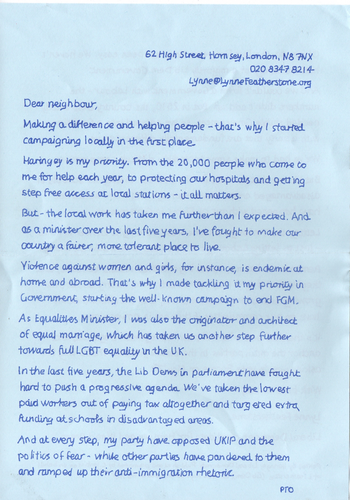 62 High Street, Hornsey, London, N8 7NX
020 8347 8214
Lynne@LynneFeatherstone.org
Dear neighbour,
Making a difference and helping people - that's why I started
campaigning locally in the first place.
Haringey is my priority. From the 20,000 people who come to
me for help each year, to protecting our hospitals and getting
step free access at local stations - it all matters.
But - the local work has taken me further than I expected. And
as a minister over the last five years, I've fought to make our
country a fairer, more tolerant place to live.
Violence against women and girls, for instance, is endemic at
home and abroad. That's why I made tackling it my priority in
Government, starting the well-known campaign to end FGM.
As Equalities Minister, I was also the originator and architect
of equal marriage, which has taken us another step further
towards full LGBT equality in the UK.
In the last five years, the Lib Dems in parliament have fought
hard to push a progressive agenda. We've taken the lowest
paid workers out of paying tax altogether and targeted extra
funding at schools in disadvantaged areas.
And at every step, my party have opposed UKIP and the
politics of fear - while other parties have pandered to them
and ramped up their anti-immigration rhetoric.
PTO